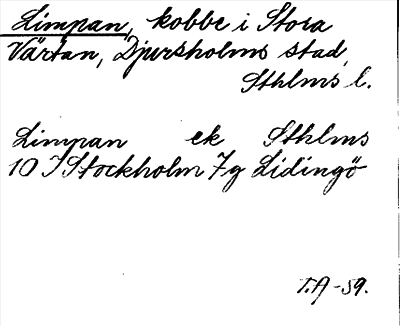 Limpan, kobbe i Stora
Värtan, Djursholms stad,
Sthlms l.
Limpan ek Sthlms
10 I Stockholm 7g Lidingö
T.A -59.